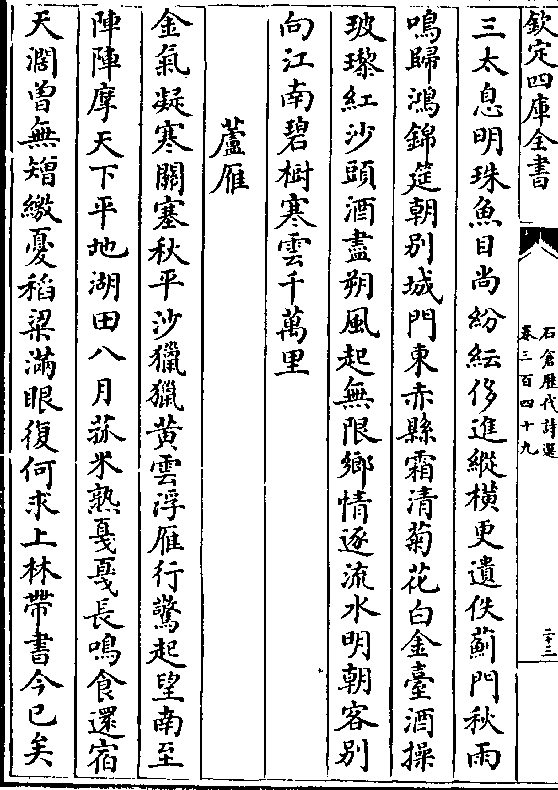 欽定四庫全書
石倉歷代詩選
卷三百四十九
二十三
三太息明珠魚目尚紛紜侈進縱橫更遺佚薊門秋雨
鳴歸鴻錦筵朝別城門東赤縣霜清菊花白金臺酒操
玻瓈紅沙頭酒盡朔風起無限鄉情逐流水明朝客別
向江南碧樹寒雲千萬里
蘆雁
金氣凝寒關塞秋平沙獵獵黄雲浮雁行驚起望南至
陣陣摩天下平地湖田八月菰米熟戛戛長鳴食還宿
天濶曾無矰繳憂稻粱滿眼復何求上林帶書今已矣